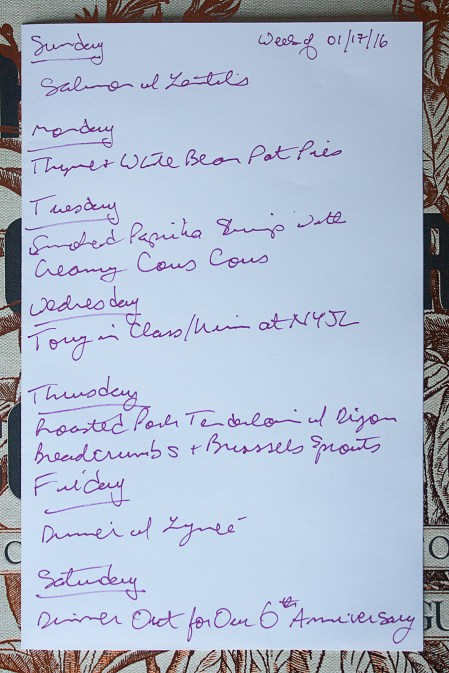 Sunday Week of 01/17/16
Salmon w/ Lentils
Monday
Thyme + White Bean Pot Pies
Tuesday
Smoked Paprika Shrimp with
Creamy Cous Cous
Wednesday
Tony in Class/ at NYJL
Thursday
Roasted Pork Tenderloin w/ Dijon
Breadcrumbs + Brussels Sprouts
Friday
Dinner w/
Saturday
Dinner Out for Our 6th Anniversary